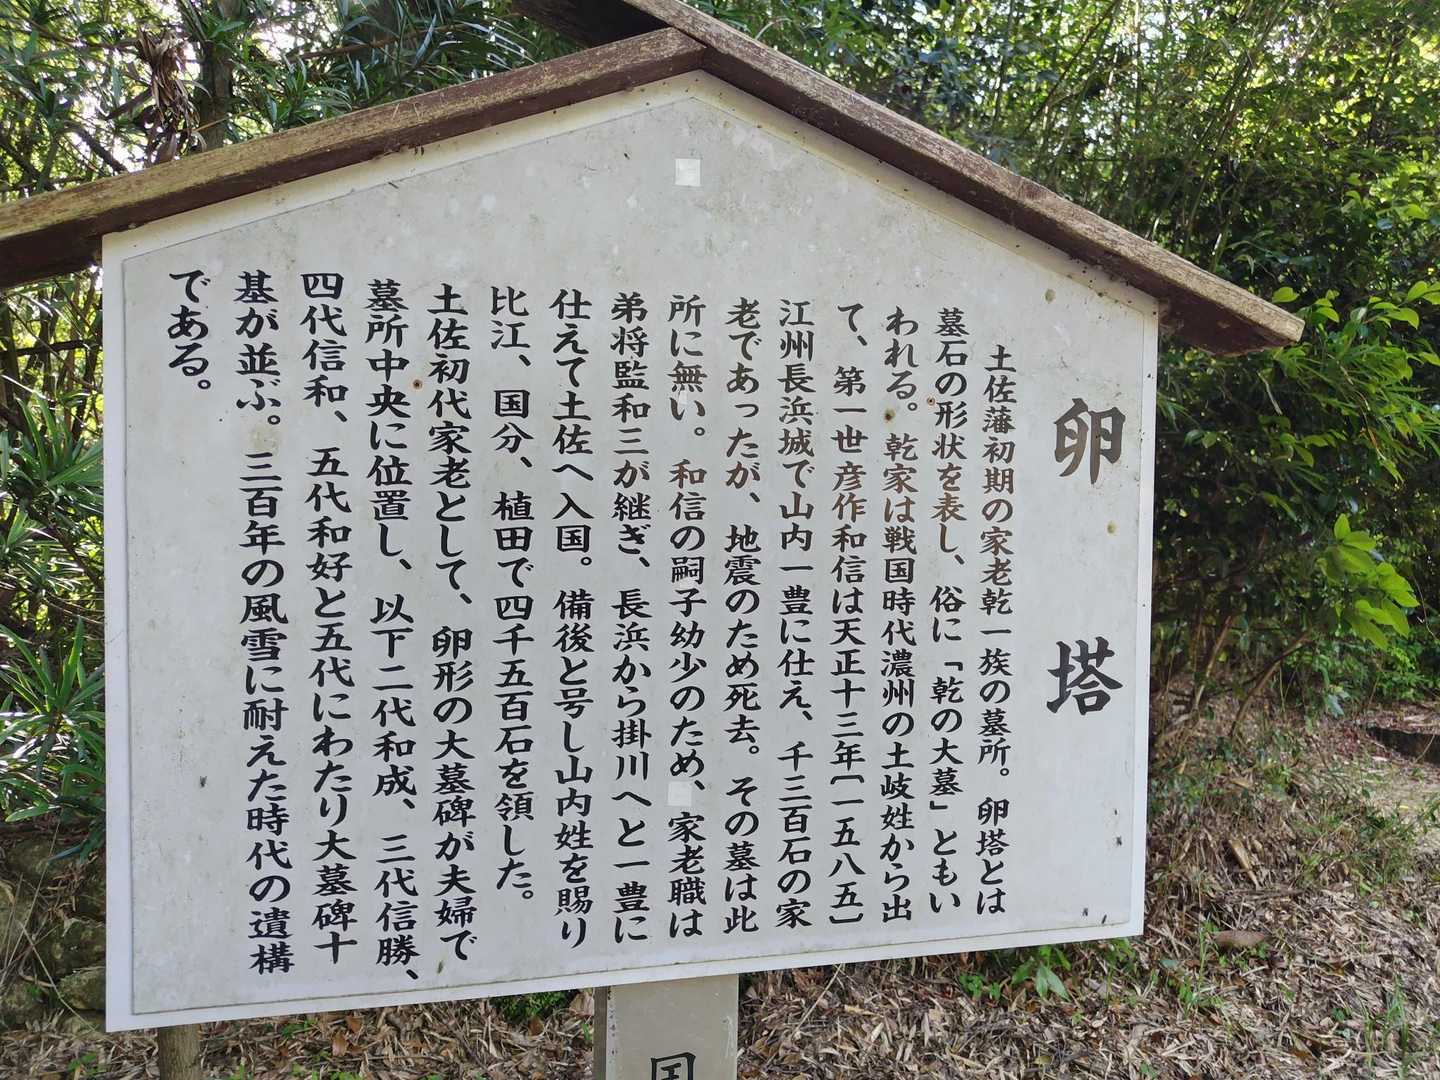 卵塔
土佐藩初期の家老乾一族の墓所。卵塔とは
墓石の形状を表し、俗に「乾の大墓」ともい
われる。乾家は戦国時代濃州の土岐姓から出
て、第一世彦作和信は天正十三年〔一五八五〕
江州長浜城で山内一豊に仕え、千三百石の家
老であったが、地震のため死去。その墓は此
所に無い。和信の嗣子幼少のため、家老職は
弟将監和三が継ぎ、長浜から掛川へと一豊に
仕えて土佐へ入国。備後と号し山内姓を賜り
比江、国分、植田で四千五百石を領した。
土佐初代家老として、卵形の大墓碑が夫婦で
墓所中央に位置し、以下二代和成、三代信勝、
四代信和、五代和好と五代にわたり大墓碑十
基が並ぶ。三百年の風雪に耐えた時代の遺構
である。
国